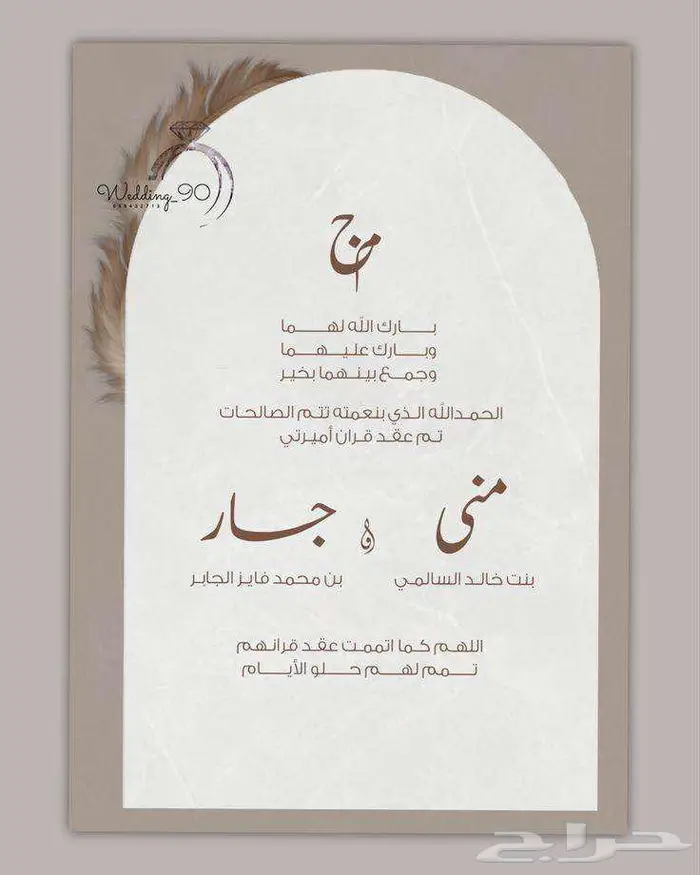 Wedding_90
بارك الله لهما
وبارك عليهما
وجمع بينهما بخير
الحمدالله الذي بنعمته تتم الصالحات
تم عقد قران أميرتي
منى و جسار
بنت خالد السالمي
بن محمد فايز الجابر
اللهم كما اتممت عقد قرانهم
تمم لهم حلو الأيام
حراج